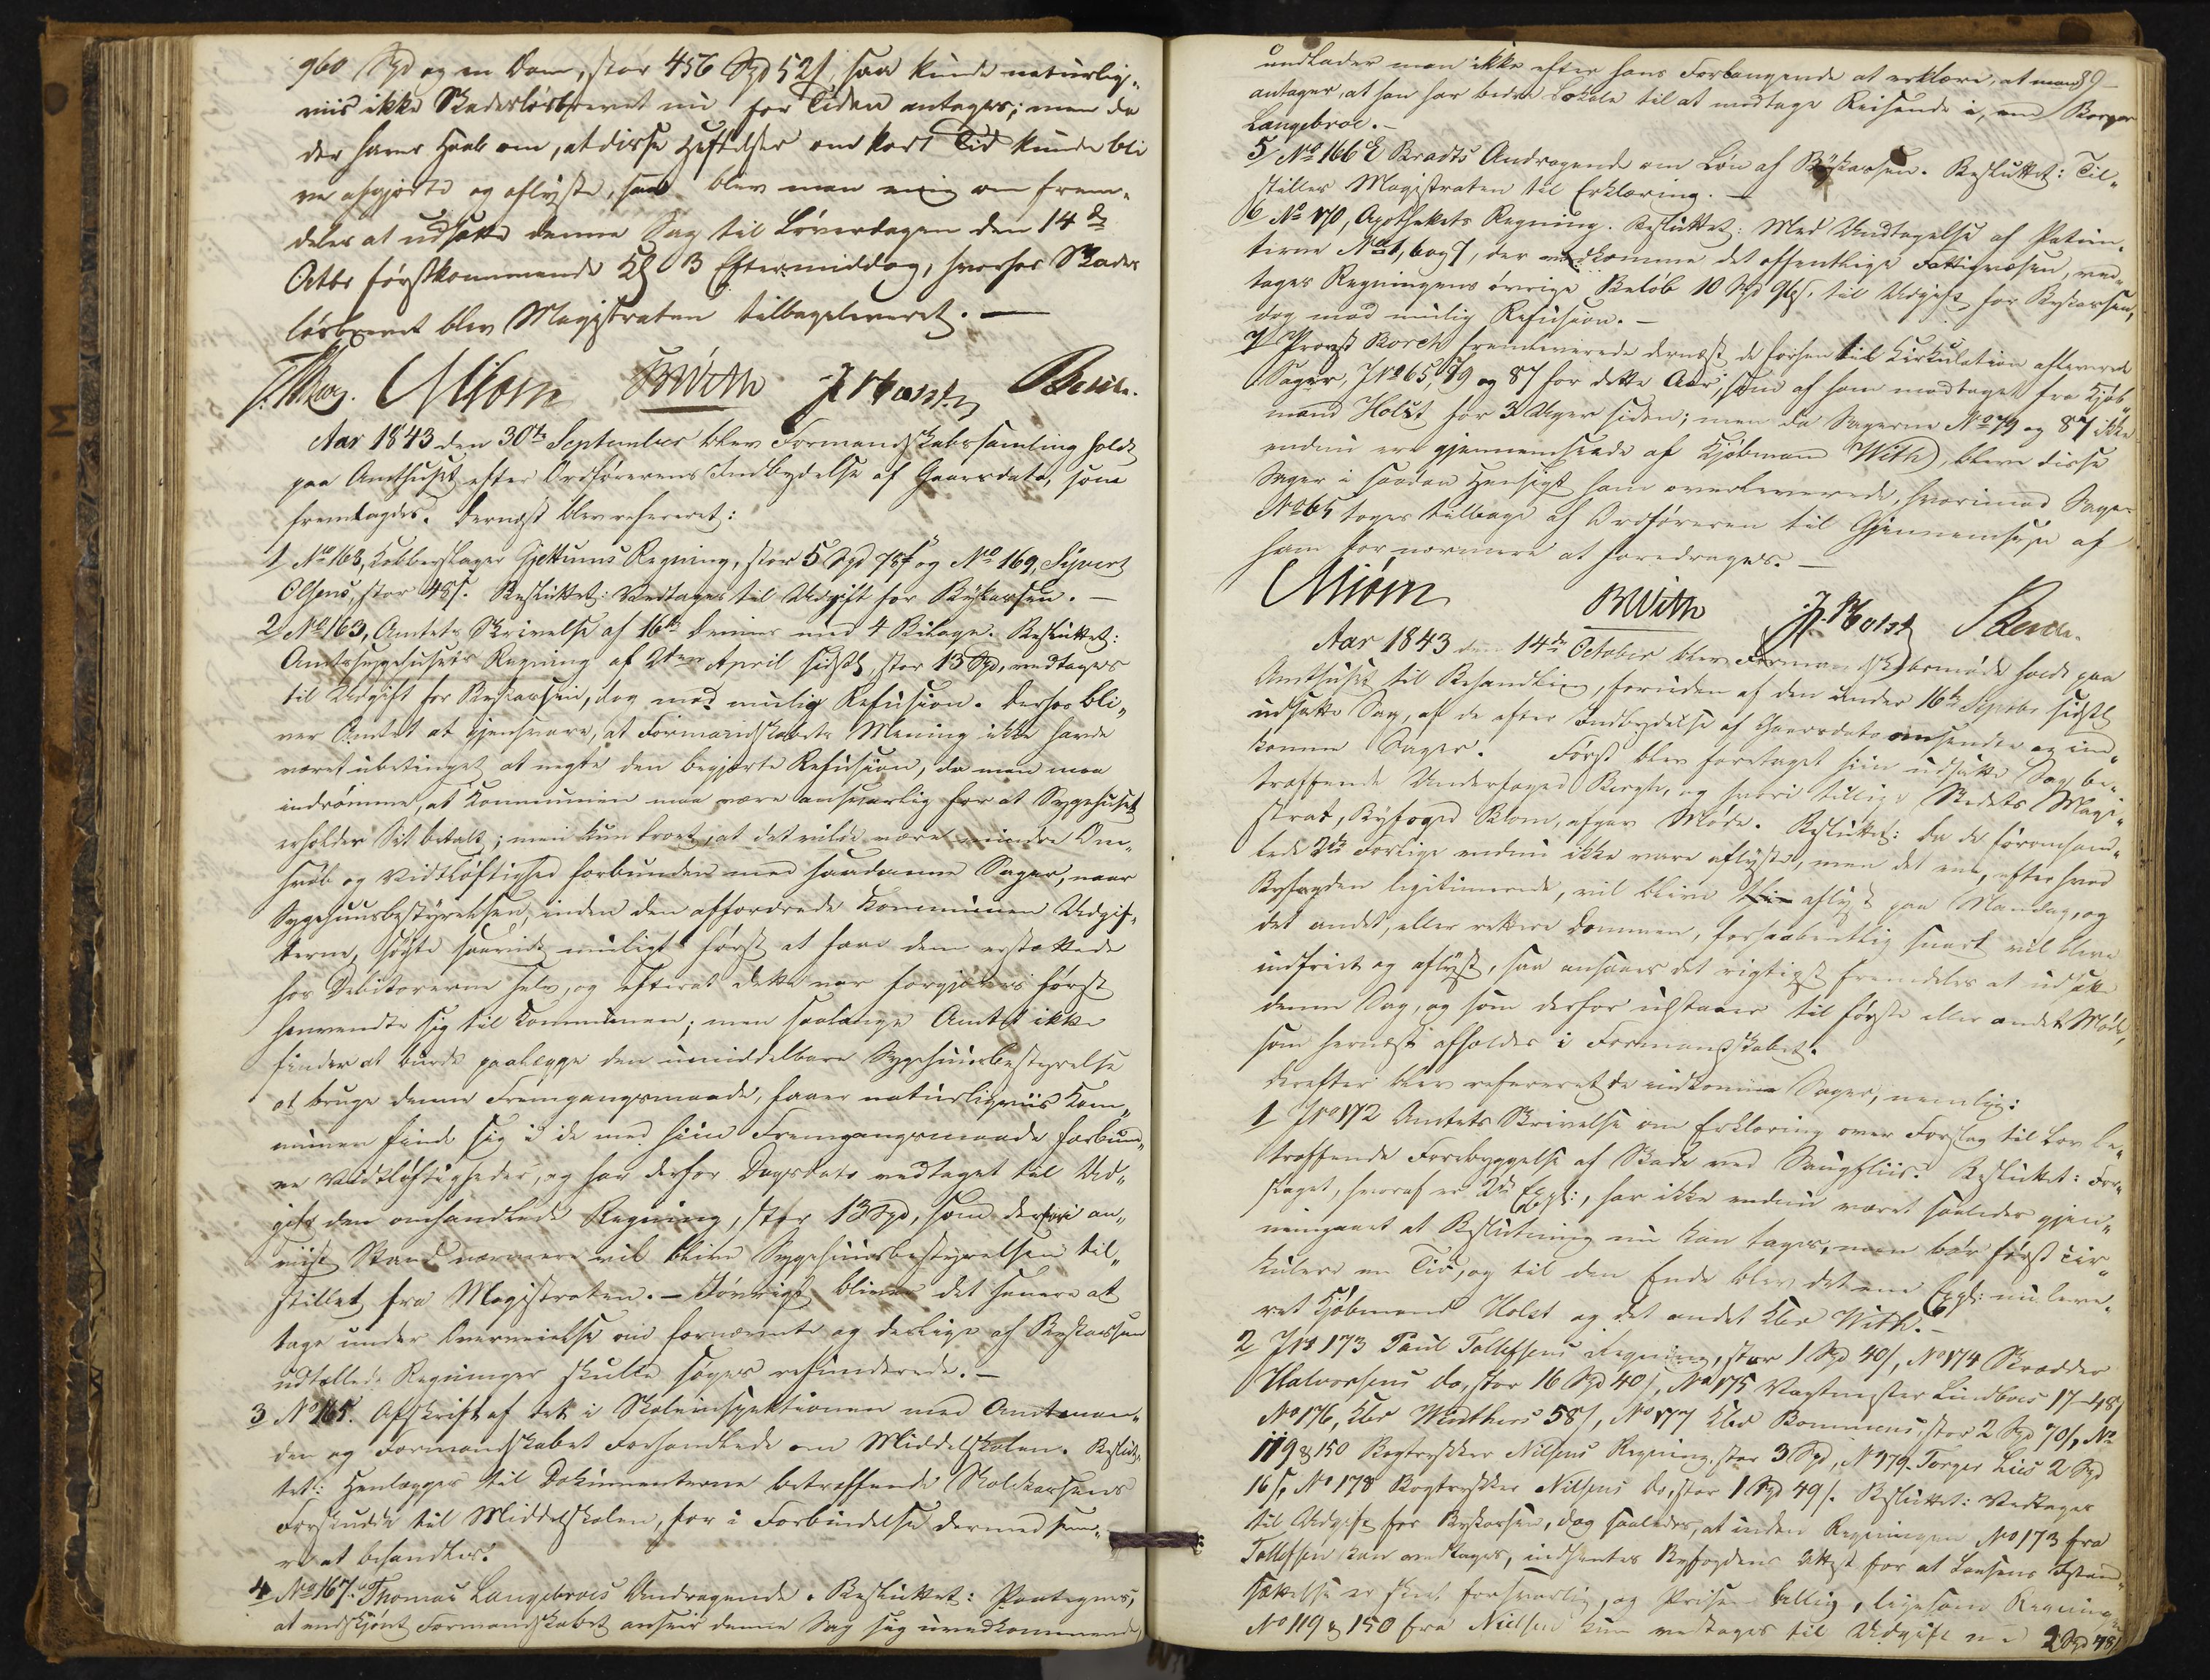 960 Spd og en Dom, stor 456 Spd 52 s, saa kunde naturlig„
viis ikke Skadesløsbrevet nu for Tiden antages; men da
der haves Haab om, at disse Heftelser om kort Tid kunde bli
ve afgjorte og aflyste, saa blev man enig om frem„
deles at udsætte denne Sag til Løverdagen den 14de
Octbr førstkommende Kl 3 Eftermiddag, hvorhos Skades
løsbrevet blev Magistraten tilbageleveret. —
CMiom BWith J. Holst
Aar 1843 den 30te September blev Formandskabssamling holdt
paa Amthuset efter Ordførerens Indbydelse af Gaarsdato, som
fremlagdes. Dernæst blev refereret:
1/ No 168, Kobberslager Gjettums Regning, stor 5 Spd 78 s og No 169, Sivert
Olsens, stor 48 s. Besluttet: Vedtages til Udgift for Bykassen. —
2/ No 163, Amtets Skrivelse af 16de dennes med 4 Bilage. Besluttet:
Amtssygehusets Regning af 2den April sidstl, stor 13 Spd, vedtages
til Udgift for Bykassen, dog mod mulig Refusion. Derhos bli„
ver Amtet at gjensvare, at Formandskabets Mening ikke havde
været ubetinget at negte den begjærte Refusion, da man maa
indrømme, at Kommunen maa være ansvarlig for at Sygehuset
erholder Sit betalt; men kun troet, at det vilde være mindre Om„
svøb og Vidtløftighed forbunden med saadanne Sager, naar
Sygehuusbestyrelsen, inden den affordrede Kommunen Udgif„
terne, søgte saavidt muligt først at faae dem erstattede
hos Debitorerne selv, og efterat dette var forgjæves først
henvendte sig til Kommunen; men saalænge Amtet ikke
finder at burde paalægge den umiddelbare Sygehuusbestyrelse
at bruge denne Fremgangsmaade, faaer naturligviis Kom„
munen finde sig i de med hiin Fremgangsmaade forbund„
ne Vidtløftigheder, og har derfor Dagsdato vedtaget til Ud„
gift den omhandlede Regning, stor 13 Spd, som derfor an„
viist Stand nærmere vil blive Sygehuusbestyrelsen til„
stillet fra Magistraten. — Iøvrigt bliver det senere at
tage under Overveielse om fornævnte og deslige af Bykassen
udtællede Regninger skulle søges refunderede. —
3 No 165. Afskrift af det i Skoleinspektionen med Amtman„
den og Formandskabet Forhandlede om Middelskolen. Beslut„
tet: Henlægges til Dokumenterne betræffende Skolekassens
Forskudde til Middelskolen, for i Forbindelse dermed sene„
re at behandles.
4 No 167. Thomas Langebroes Andragende. Besluttet: Paategnes,
at endskjønt Formandskabet anseer denne Sag sig uvedkommende
89
undlader man ikke efter hans Forlangende at erklære, at man
antager, at han har bedre Lokale til at modtage Reisende i, end Borger
Langebroe. —
5/ No 166 E Bradts Andragende om Løn af Bykassen. Besluttet: Til„
stilles Magistraten til Erklæring. —
6 No 170, Apothekets Regning. Besluttet: Med Undtagelse af Patien„
terne No 1, 6 og 7, der vedkomme det offentlige Fattigvæsen, ved„
tages Regningens øvrige Beløb 10 Spd 96 s. til Udgift for Bykassen,
dog mod mulig Refusion. —
7 Provst Borch fremleverede dernæst de forhen til Cirkulation afleverede
Sager, JNo 65, 79 og 87 for dette Aar, som af ham modtaget fra Kjøb„
mand Holst for 3 Uger siden; men da Sagerne No 79 og 87 ikke
endnu ere gjennemseede af Kjøbmand With, bleve disse
Sager i saadan Hensigt ham overleverede, hvorimod Sagen
No 65 toges tilbage af Ordføreren til Gjennemsyn af
ham for nærmere at foredrages. —
CMiom BWith J. Holst
Aar 1843 den 14de October blev Formandskabsmøde holdt paa
Amthuset til Behandling, foruden af den under 16de Septbr sidstl
udsatte Sag, af de efter Indbydelse af Gaarsdato omsendte og ind„
komne Sager. Først blev foretaget hiin udsatte Sag be„
træffende Underfoged Bergh, og hvori tillige Stedets Magi„
strat, Byfoged Blom, afgav Møde. Besluttet: Da de foromhand„
lede 2de Forlige endnu ikke vare aflyste, men det ene, efter hvad
Byfogden legitimerede, vil blive aflyst paa Mandag, og
det andet, eller rettere Dommen, forhaabentlig snart vil blive
indfriet og aflyst, saa ansaaes det rigtigst fremdeles at udsætte
denne Sag, og som derfor udstaaer til første eller andet Møde,
som hernæst afholdes i Formandskabet.
Derefter blev refereret de indkomne Sager, nemlig:
1 JNo 172 Amtets Skrivelse om Erklæring over Forslag til Lov be„
træffende Forebyggelse af Skade ved Saugfliis. Besluttet: For„
slaget, hvoraf er 2de Expl:, har ikke endnu været saaledes gjen„
nemgaaet at Beslutning nu kan tages, men bør først Cir„
kulere en Tid, og til den Ende blev det ene Expl: nu leve„
ret Kjøbmand Holst og det andet Kbm With. —
2 JNo 173 Paul Tollefsens Regning, stor 1 Spd 40 s, No 174 Skrædder
Halvorsens do, stor 16 Spd 40 s, No 175 Vagtmester Lindboes 17–48 s
No 176, Kbm Winthers 58 s, No 177 Kbm Bommens, stor 2 Spd 70 s, No
119 & 150 Bogtrykker Nilsens Regning, stor 3 Spd, No 179 Torger Lies 2 Spd
16 s, No 178 Bogtrykker Nilsens do, stor 1 Spd 49 s. Besluttet: Vedtages
til Udgift for Bykassen, dog saaledes, at inden Regningen No 173 fra
Tollefsen kan vedtages, indhentes Byfogdens Attest for at Laasens Istand„
sættelse er skeet forsvarlig, og Prisen billig, ligesom Regning
No 119 & 150 fra Nielsen kun vedtages til Udgift med 2 Spd 48 s